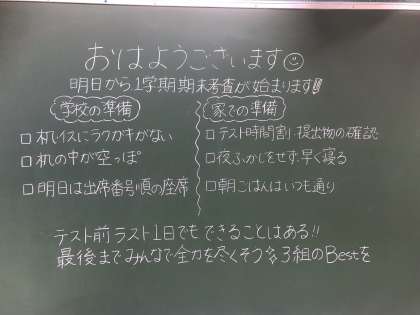 おはようございます
明日から1学期期末考査が始まります!!
学校の準備
□机、イスにラクガキがない
□机の中が空っぽ
□明日は出席番号順の座席
家での準備
□テスト時間割、提出物の確認
□夜ふかしをせず、早く寝る
□朝ごはんはいつも通り
テスト前ラスト1日でもできることはある!!
最後までみんなで全力を尽くそう☆3組のBestを